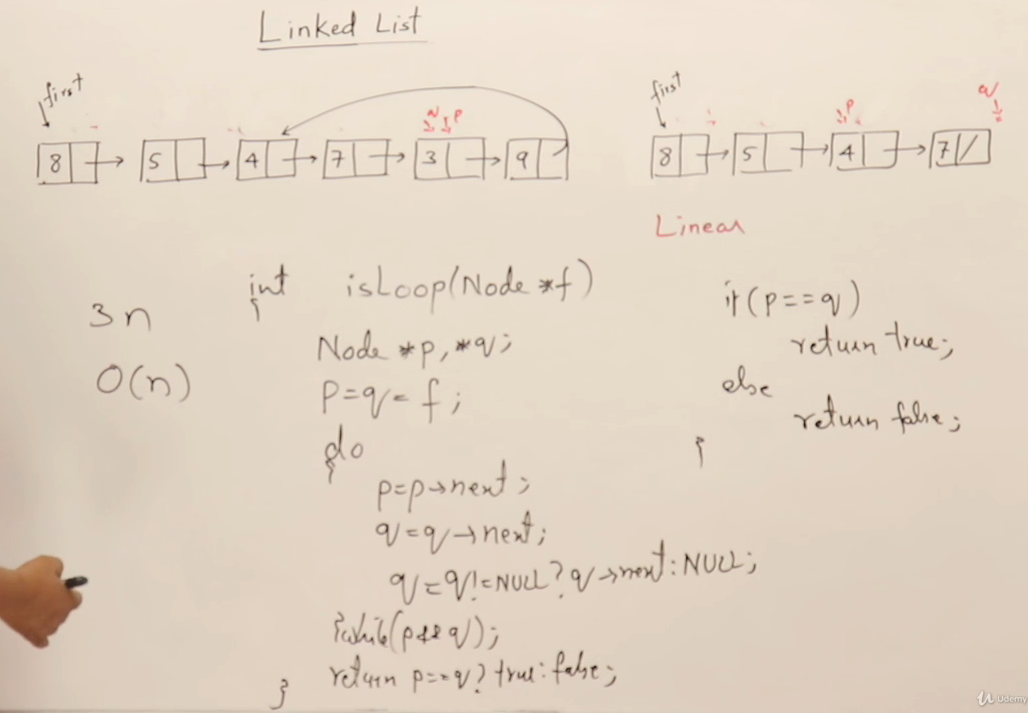 Linked List
first
q p
8 5 4 7 3 9
first
p
q
8 5 4 7 /
Linear
3n
O(n)
int isLoop(Node *f)
{
Node *p, *q;
p=q=f;
do
{
p=p→next;
q=q→next;
q=q!=NULL?q→next:NULL;
}while(p&&q);
return p==q?true:false;
}
if(p==q)
return true;
else
return false;
}
Udemy